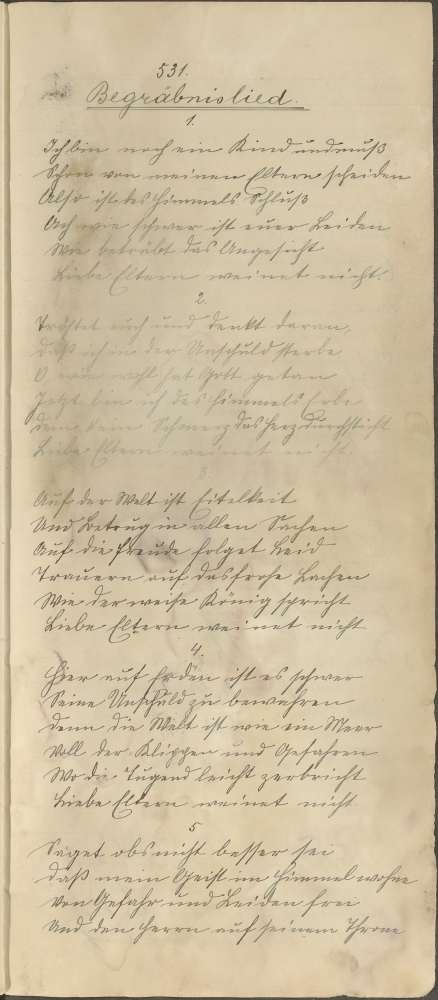 531.
Begräbnislied.
1.
Ich bin noch ein Kind und muß
Schon von meinen Eltern scheiden
Also ist des Himmels Schluß
Ach wie schwer ist euer Leiden
Wie betrübt das Angesicht
Liebe Eltern weinet nicht.
2.
Tröstet euch und denkt daran,
Daß ich in der Unschuld sterbe
O wie wohl hat Gott getan
Jetzt bin ich des Himmels Erbe
Dem kein Schmerz das Herz durchsticht
Liebe Eltern weinet nicht.
3.
Auf der Welt ist Eitelkeit
Und Betrug in allen Sachen
Auf die Freude folget Leid
Trauern auf das frohe Lachen
Wie der weise König spricht
Liebe Eltern weinet nicht
4.
Hier auf Erden ist es schwer
Seine Unschuld zu bewahren
Denn die Welt ist wie ein Meer
Voll der Klippen und Gefahren
Wo die Tugend leicht zerbricht
Liebe Eltern weinet nicht
5
Saget obs nicht besser sei
Daß mein Geist im Himmel wohne
Von Gefahr und Leiden frei
Und den Herrn auf seinem Throne